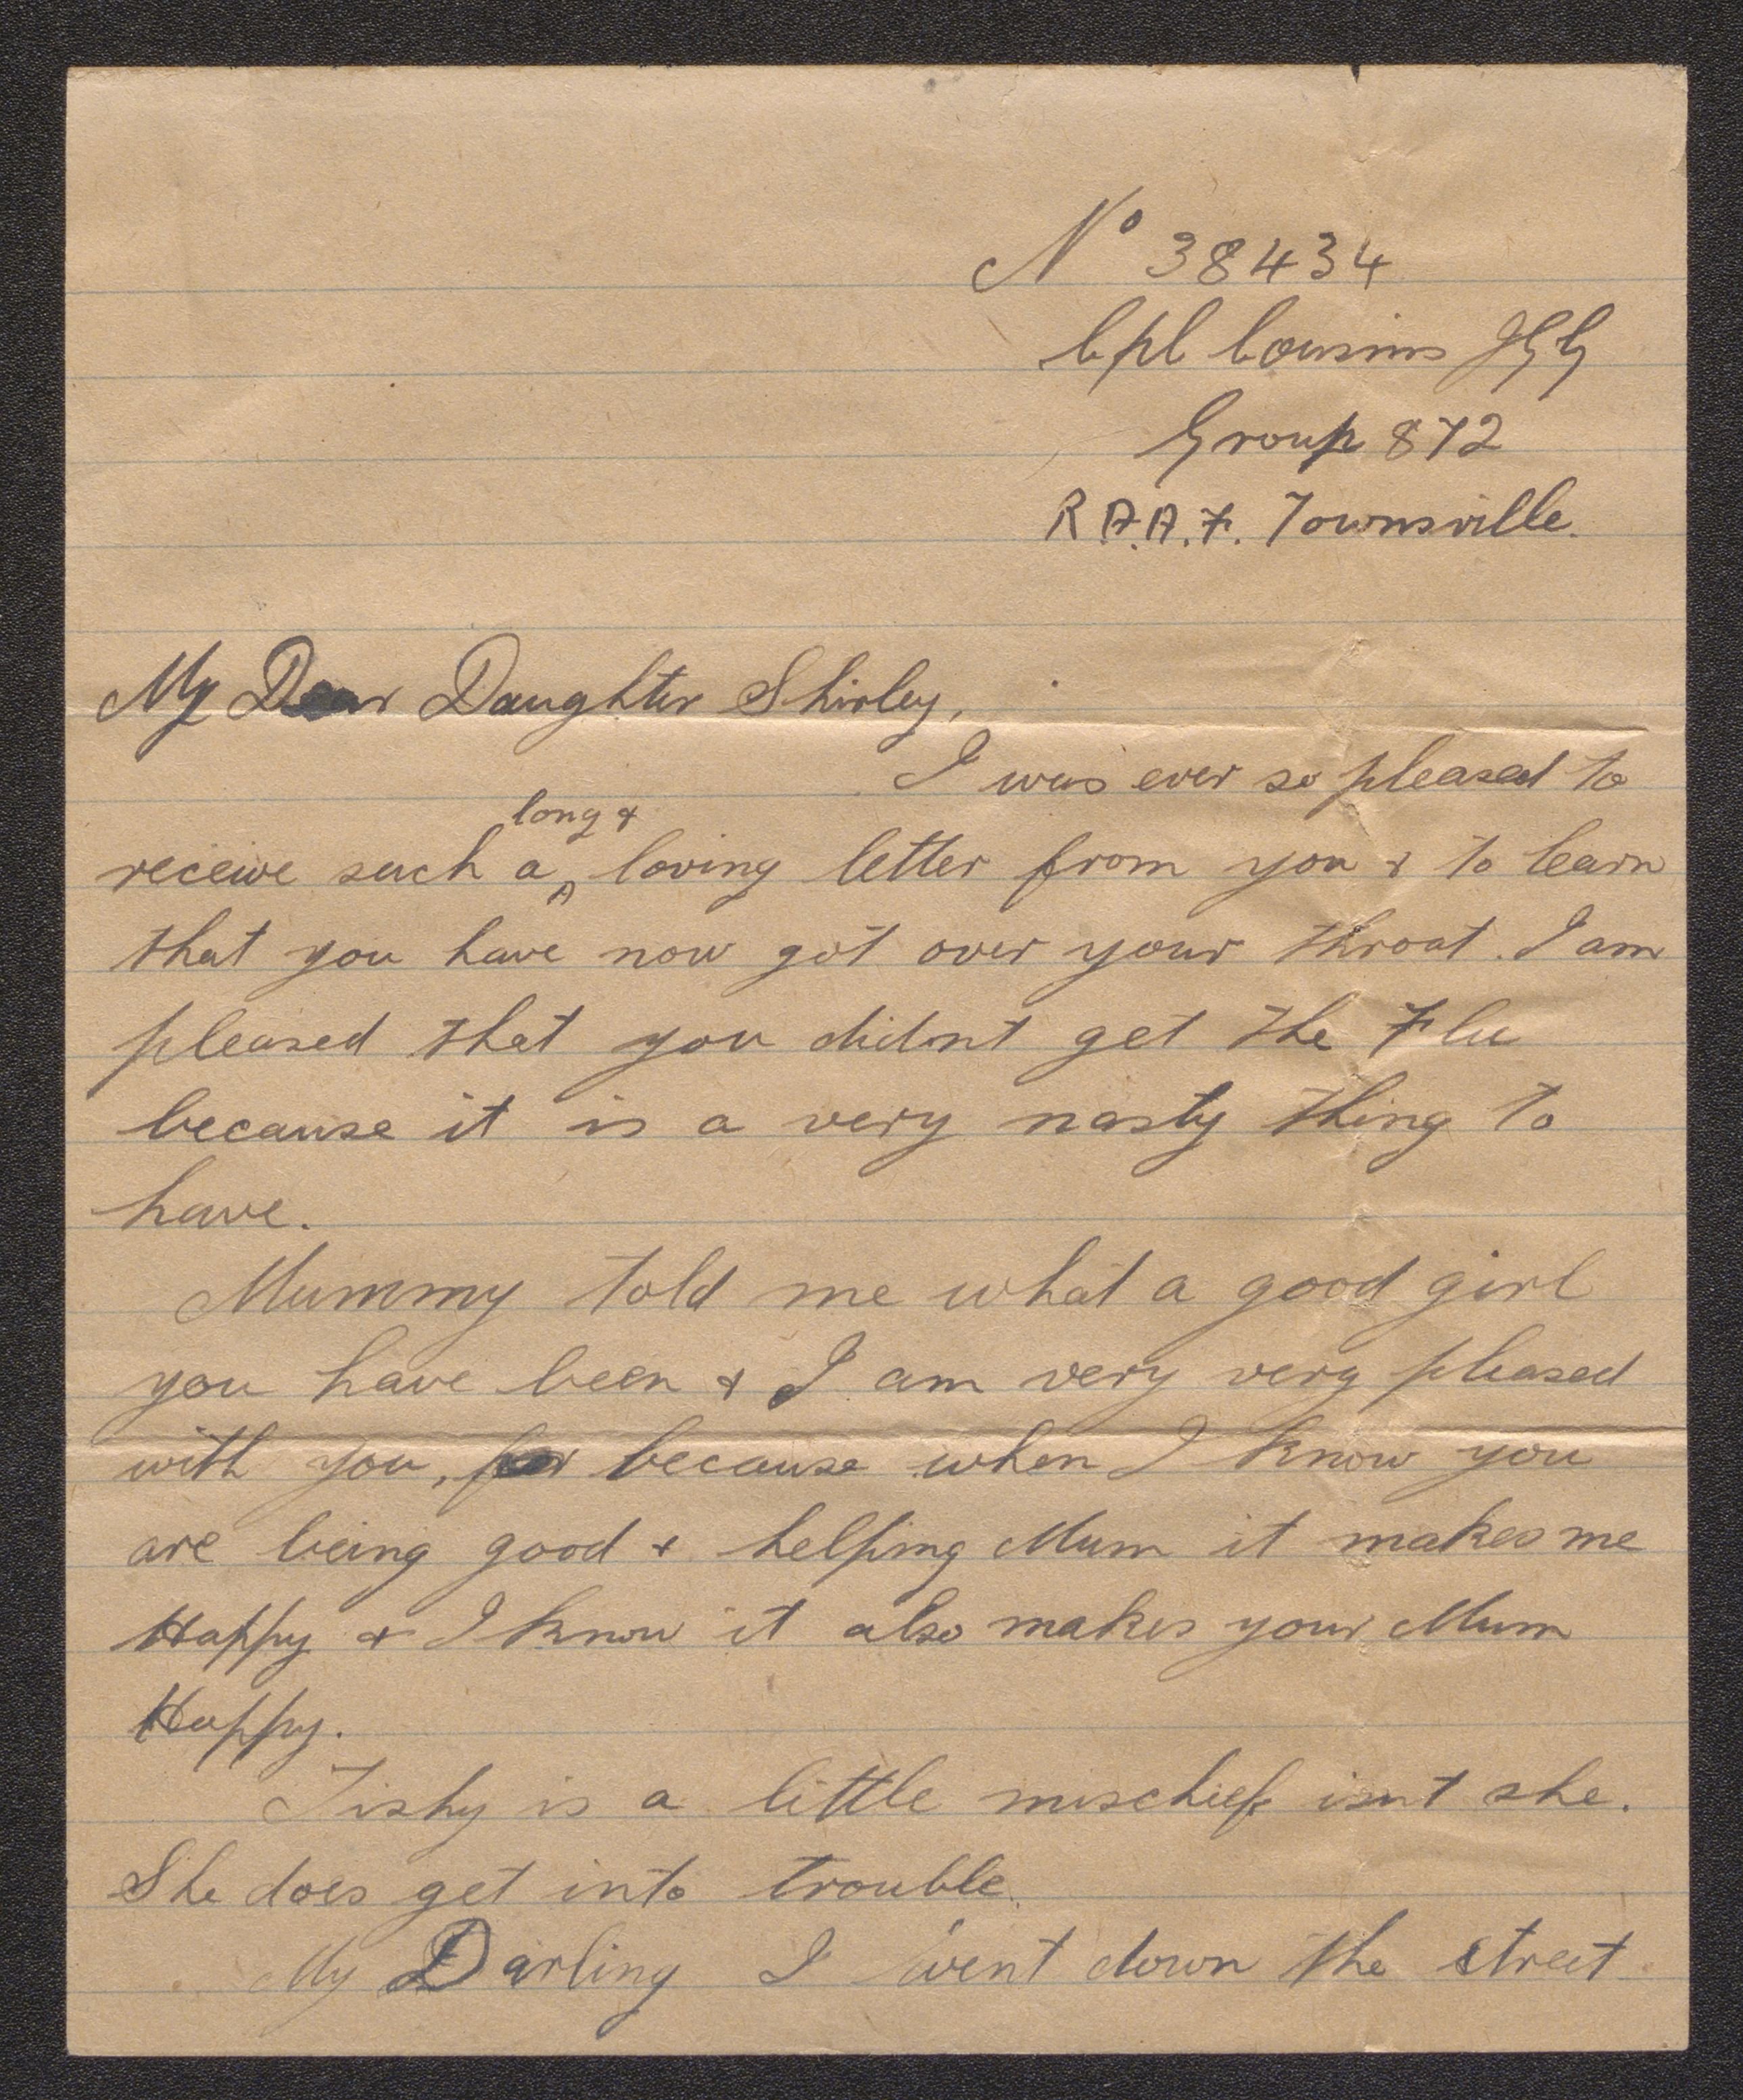 No 38434
Cpl Cousins JGG
Group 872
R A.A.F. Townsville.
My Dear Daughter Shirley,
I was ever so pleased to
long &
receive such a loving letter from you & to learn
that you have now got over your throat. I am
pleased that you didnt get the Flu
because it is a very nasty thing to
have.
Mummy told me what a good girl
you have been & I am very very pleased
with you, for because when I know you
are being good & helping Mum it makes me
Happy & I know it also makes your Mum
Happy.
Tishy is a little mischief isnt she.
She does get into trouble.
My Darling I went down the street